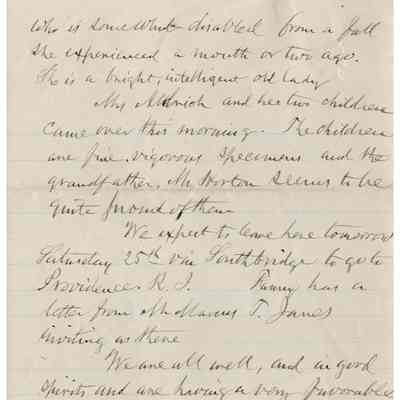 who is somewhat disabled from a fall
she experienced a month or two ago.
She is a bright, intelligent old lady
Mrs Aldrich and her two children
came over this morning. The children
are fine vigorous specimens and the
grandfather, Mr Morton seems to be
quite proud of them
We expect to leave here tomorrow
Saturday 25th via Southbridge to go to
Providence R. I. Fanny has a
letter from Mr Marcus T. Janes
inviting us there
We are all well, and in good
spirits and are having a very favorable